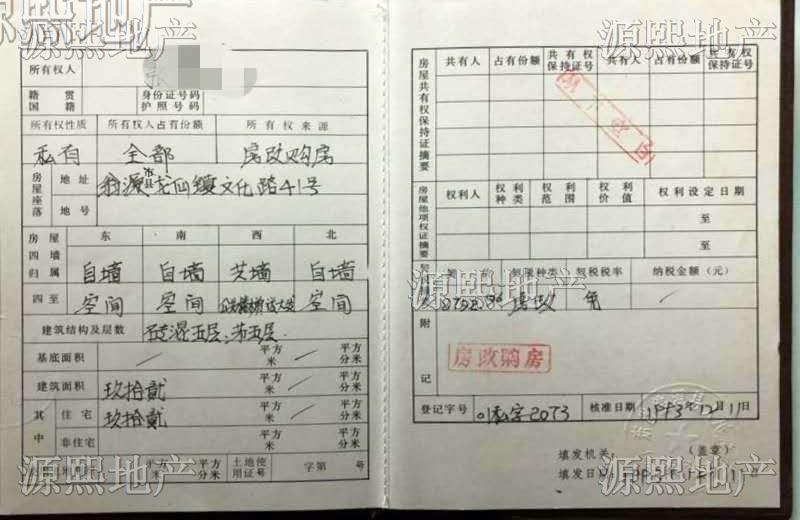 源熙地产
源熙地产
所有权人 张
籍贯 国籍 身份证号码 护照号码
所有权性质 所有权人占有份额 所有权来源
私有 全部 房改购房
房屋座落 地址 翁源县龙仙镇文化路41号
地号
房屋 东 南 西 北
四墙归属 自墙 自墙 共墙 自墙
四至 空间 空间 空间
建筑结构及层数 砖混五层、第五层
基底面积 / 平方米 / 平方分米
建筑面积 玖拾贰 平方米 / 平方分米
其中 住宅 玖拾贰 平方米 / 平方分米
非住宅 平方米 平方分米
平方米 平方分米 土地使用证号 字第 号
源熙地产
源熙地产
房屋共有权保持证摘要 共有人 占有份额 共有权保持证号 共有人 占有份额 共有权保持证号
房屋他项权证摘要 权利人 权利种类 权利范围 权利价值 权利设定日期
至
至
契价 契税种类 契税税率 纳税金额(元)
房改 免 /
附记
房改购房
登记字号 字2073 核准日期 1993年12月11日
填发机关: (盖章)
填发日期:
源熙地产